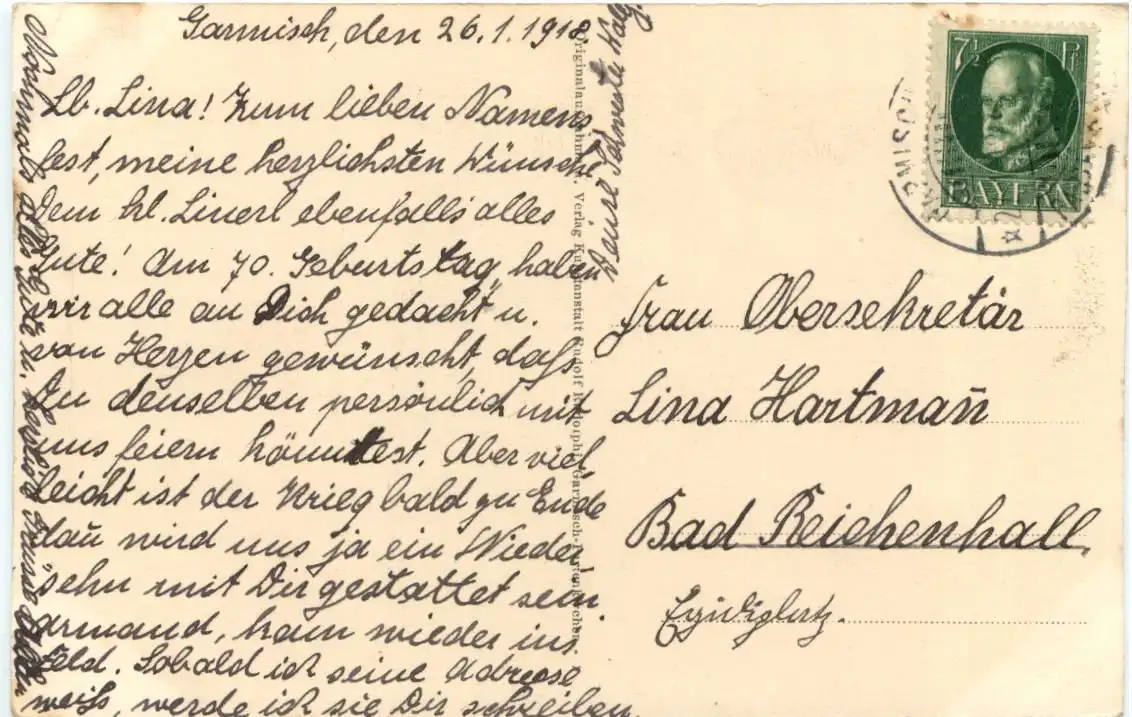 Garmisch, den 26.1.1918.
Lb. Lina! Zum lieben Namens-
fest, meine herzlichsten Wünsche
Dem kl. Linerl ebenfalls alles
Gute! Am 70. Geburtstag, haben
wir alle an Dich gedacht u.
von Herzen gewünscht, daß
Du denselben persönlich mit
uns feiern könntest. Aber viel
leicht ist der Krieg bald zu Ende
dañ wird uns ja ein Wieder-
sehn mit Dir gestattet sein.
Armand, kam wieder ins
Feld. Sobald ich seine Adresse
weiß, werde ich sie Dir schreiben.
Nochmals alles Gute u. herzliche Grüße
Deine Schwester
Originalaufnahme. Verlag Kunstanstalt Rudolf Rudolphi, Garmisch-Partenkirchen
7½ Pf
BAYERN
Frau Obersekretär
Lina Hartmañ
Bad Reichenhall